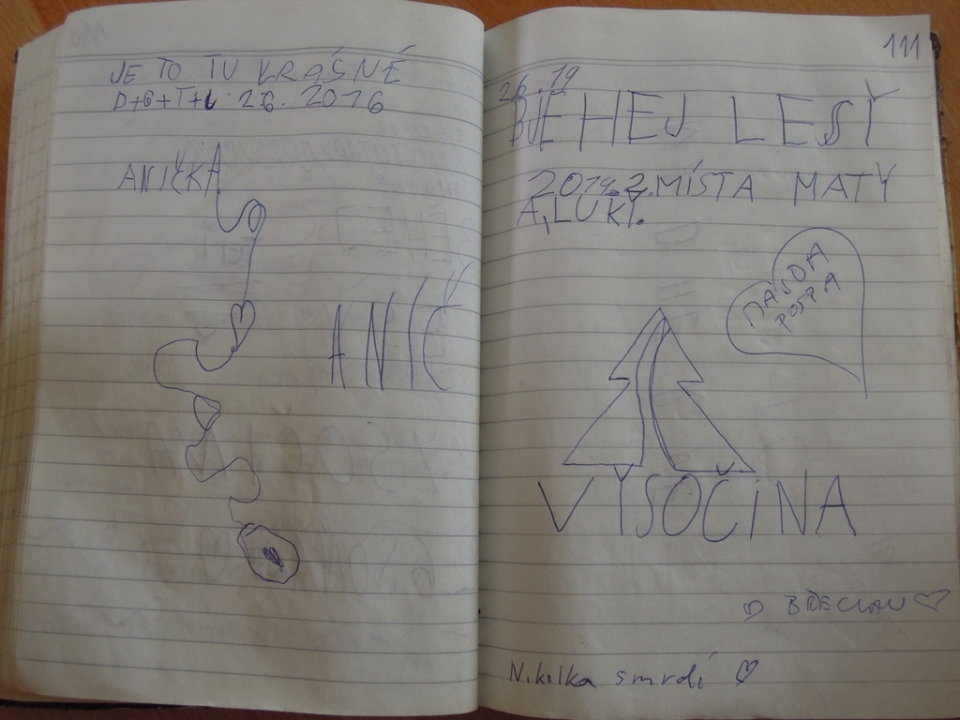 JE TO TU KRÁSNÉ
D+G+T+L 2.6. 2016
ANIČKA
ANIČ
111
2.6.19
BJEHEJ LESY
2019 2. MÍSTA MATY
A, LUKY.
MAJDA
POSPA
VYSOČINA
BŘECLAV
Nikilka smrdí